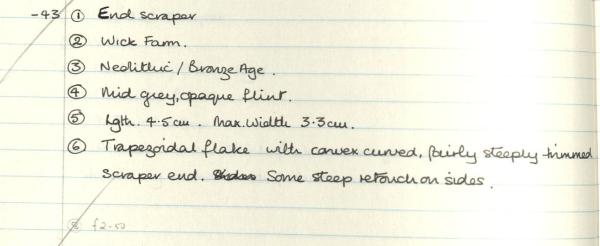 -43 ① End scraper
② Wick Farm.
③ Neolithic / Bronze Age.
④ Mid grey, opaque flint.
⑤ Lgth. 4.5cm. Max. Width 3.3cm.
⑥ Trapezoidal flake with convex curved, fairly steeply trimmed
scraper end. Some steep retouch on sides.
⑧ £2-50